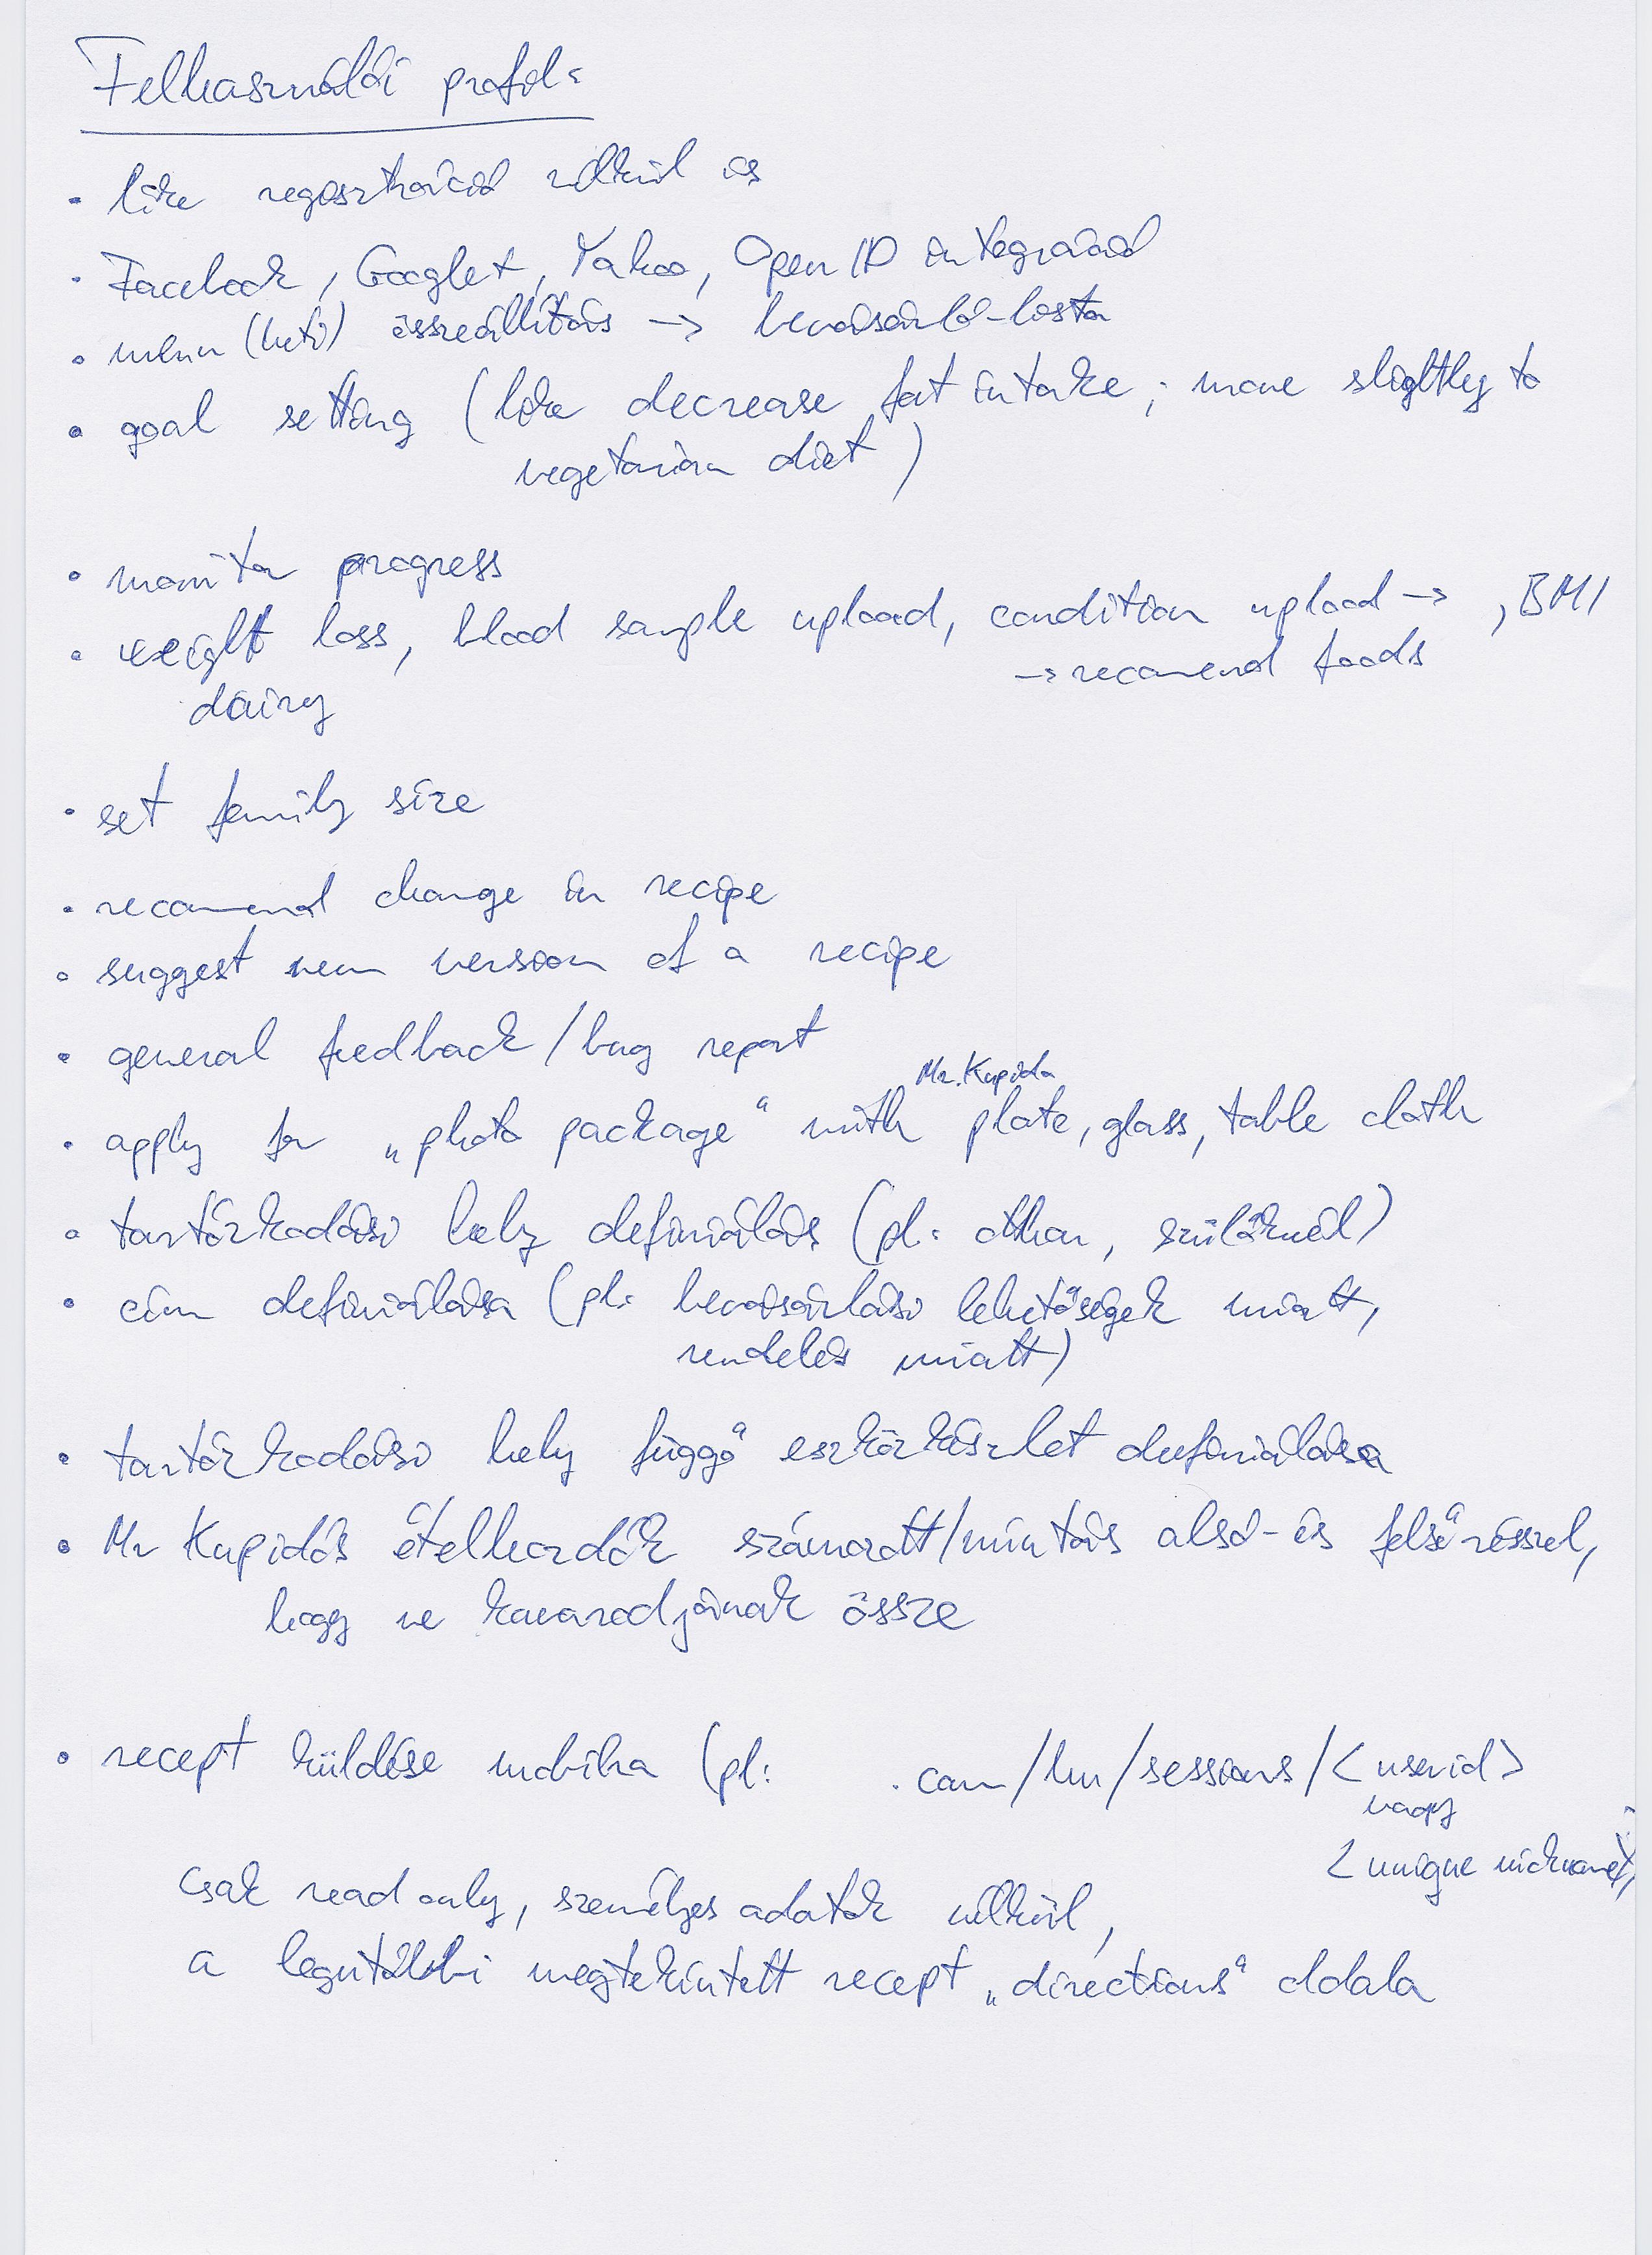 Felhasználói profil:
• like regisztráció nélkül is
• Facebook, Google+, Yahoo, OpenID integráció
• menü (heti) összeállítás → bevásárló-lista
• goal setting (like decrease fat intake; move slightly to
vegetarian diet)
• monitor progress
• weight loss, blood sample upload, condition upload → , BMI
→ recomend foods
dairy
• set family size
• recommend change in recipe
• suggest new version of a recipe
• general feedback/bug report
Mr. Kupida
• apply for „photo package" with plate, glass, table cloth
• tartózkodási hely definiálás (pl: otthon, szülőknél)
• cím definiálása (pl: bevásárlási lehetőségek miatt,
rendelés miatt)
• tartózkodási hely függő eszközkészlet definiálása
• Mr Kupidás ételhordók számozott/mintás alsó- és felsőrésszel,
hogy ne kavarodjanak össze
• recept küldése mobilra (pl: .com/hu/sessions/<userid>
vagy
<unique nickname>)
csak read only, személyes adatok nélkül,
a legutóbbi megtekintett recept „directions" oldala